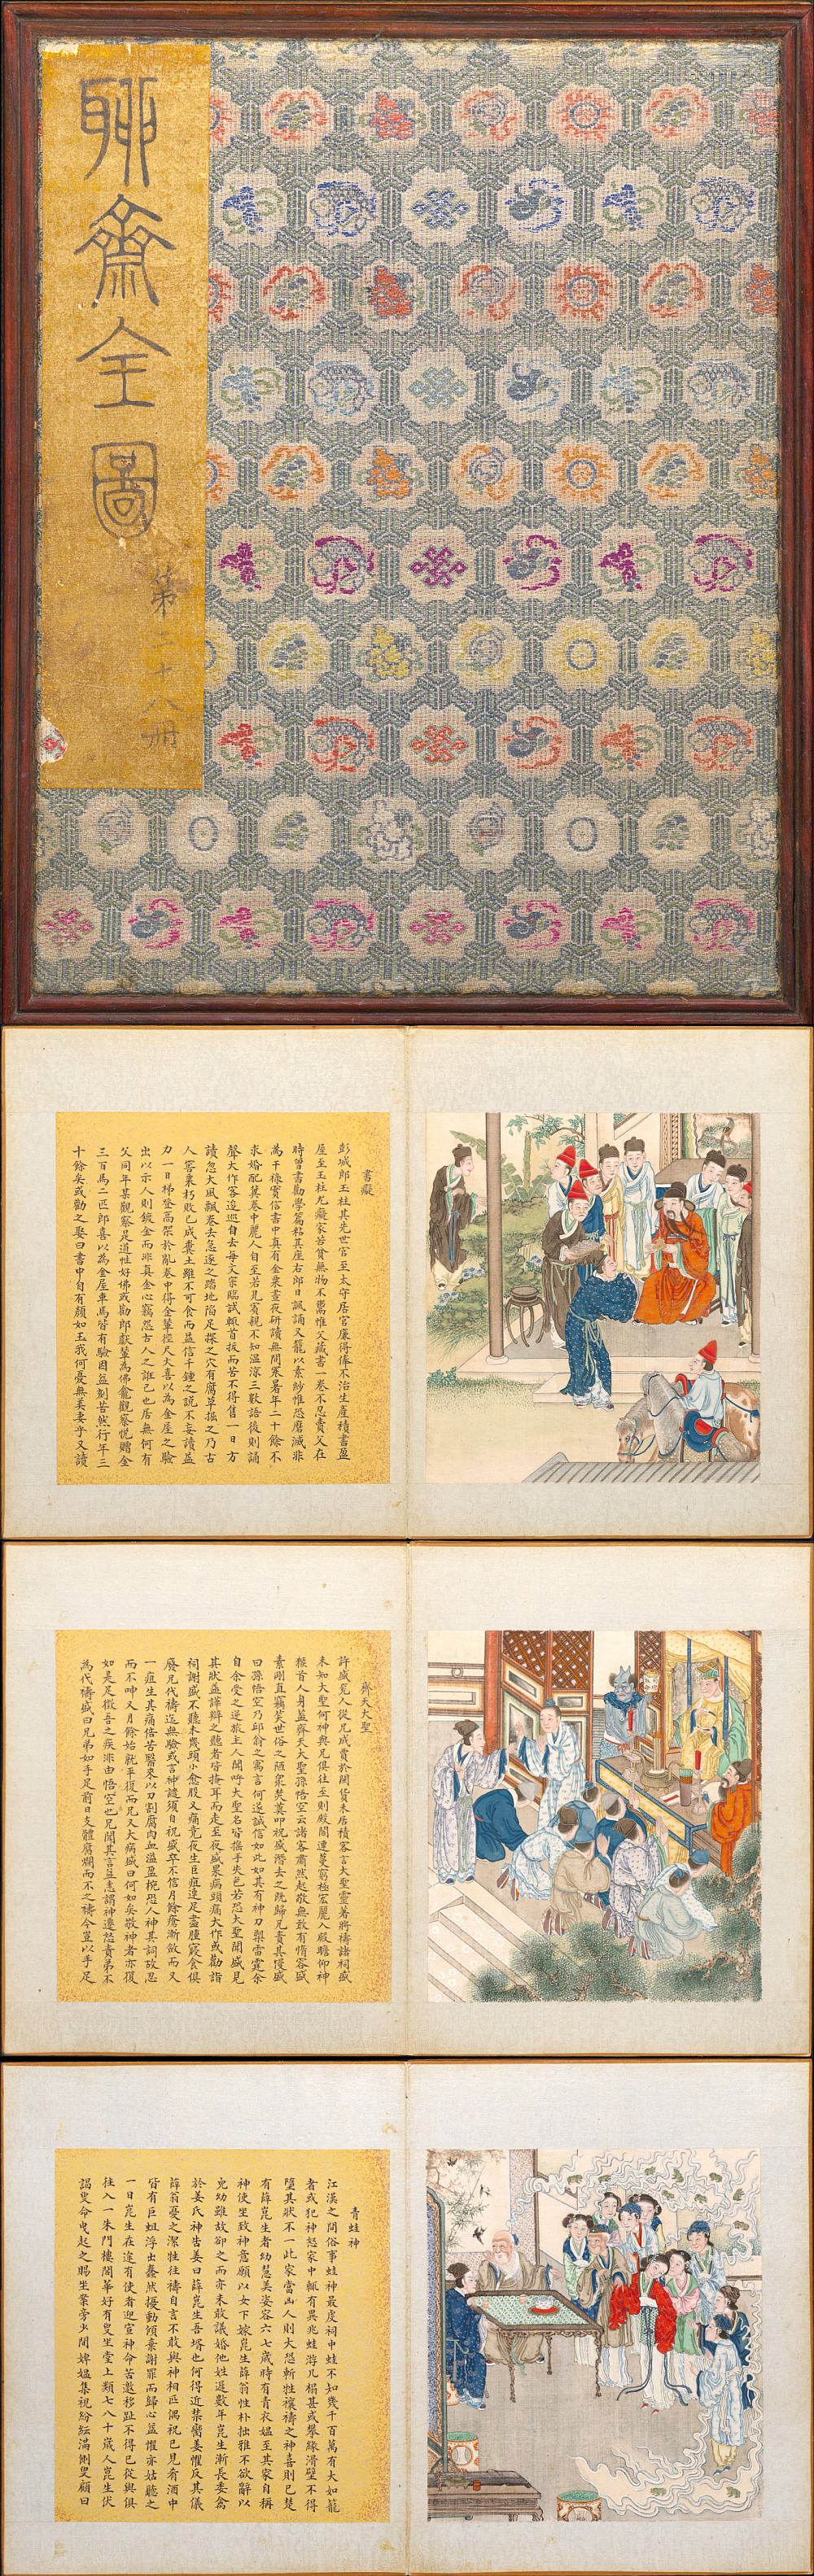 聊齋全圖
第二十八冊
書癡
彭城郎玉柱其先世官至太守居官廉得俸不治生產積書盈
屋至玉柱尤癡家苦貧無物不鬻惟父藏書一卷不忍賣父在
時曾書勸學篇粘其座右郎日諷誦又籠以素紗惟恐磨滅非
為干祿實信書中真有金粟晝夜研讀無間寒暑年二十餘不
求婚配冀卷中麗人自至若見賓親不知溫涼三數語後則誦
聲大作客逡巡自去每文宗臨試輒首拔而苦不得售一日方
讀忽大風飄卷去急逐之踏地陷足探之穴有腐草掘之乃古
人窖粟朽敗已成糞土雖不可食而益信千鍾之說不妄讀益
力一日梯登高架於亂卷中得金輦徑尺大喜以為金屋之驗
出以示人則鍍金而非真金心竊怨古人之誑己也居無何有
父同年某觀察是道性好佛或勸郎獻輦為佛龕觀察悅贈金
三百馬二匹郎喜以為金屋車馬皆有驗因益刻苦然行年三
十餘矣或勸之娶曰書中自有顏如玉我何憂無美妻乎又讀
齊天大聖
許盛兗人從兄成賈於閩貨未居積客言大聖靈著將禱諸祠盛
未知大聖何神與兄俱往至則殿閣連蔓窮極宏麗入殿瞻仰神
猴首人身蓋齊天大聖孫悟空云諸客肅然起敬無敢有惰容盛
素剛直竊笑世俗之陋眾焚奠叩祝盛潛去之既歸兄責其慢盛
曰孫悟空乃邱翁之寓言何遂誠信如此如其有神刀槊雷霆余
自余受之逆旅主人聞呼大聖名皆搖手失色若恐大聖聞盛見
其狀益譁辯之聽者皆掩耳而走至夜盛果病頭痛大作或勸詣
祠謝盛不聽未幾頭小愈股又痛竟夜生巨疽連足盡腫寢食俱
廢兄代禱迄無驗或言神譴須自祝盛卒不信月餘瘡漸斂而又
一疽生其痛倍苦醫來以刀割腐肉血溢盈椀恐人神其詞故忍
而不呻又月餘始就平復而兄又大病盛曰何如矣敬神者亦復
如是足徵吾之疾非由悟空也兄聞其言益恚謂神遷怒責弟不
為代禱盛曰兄弟如手足前日支體糜爛而不之禱今豈以手足
青蛙神
江漢之間俗事蛙神最虔祠中蛙不知幾千百萬有大如籠
者或犯神怒家中輒有異兆蛙游几榻甚或攀緣滑壁不得
墮其狀不一此家當凶人則大恐斬牲禳禱之神喜則已楚
有薛崑生者幼慧美姿容六七歲時有青衣媼至其家自稱
神使坐致神意願以女下嫁崑生薛翁性朴拙雅不欲辭以
兒幼雖故卻之而亦未敢議婚他姓遲數年崑生漸長委禽
於姜氏神告姜曰薛崑生吾壻也何得近禁臠姜懼反其儀
薛翁憂之潔牲往禱自言不敢與神相匹偶祝已見肴酒中
皆有巨蛆浮出蠢然擾動傾棄謝罪而歸心益懼亦姑聽之
一日崑生在途有使者迎宣神命苦邀移趾不得已從與俱
往入一朱門樓閣華好有叟坐堂上類七八十歲人崑生伏
謁叟命曳起之賜坐案旁少間婢媼集視紛紜滿側叟顧曰